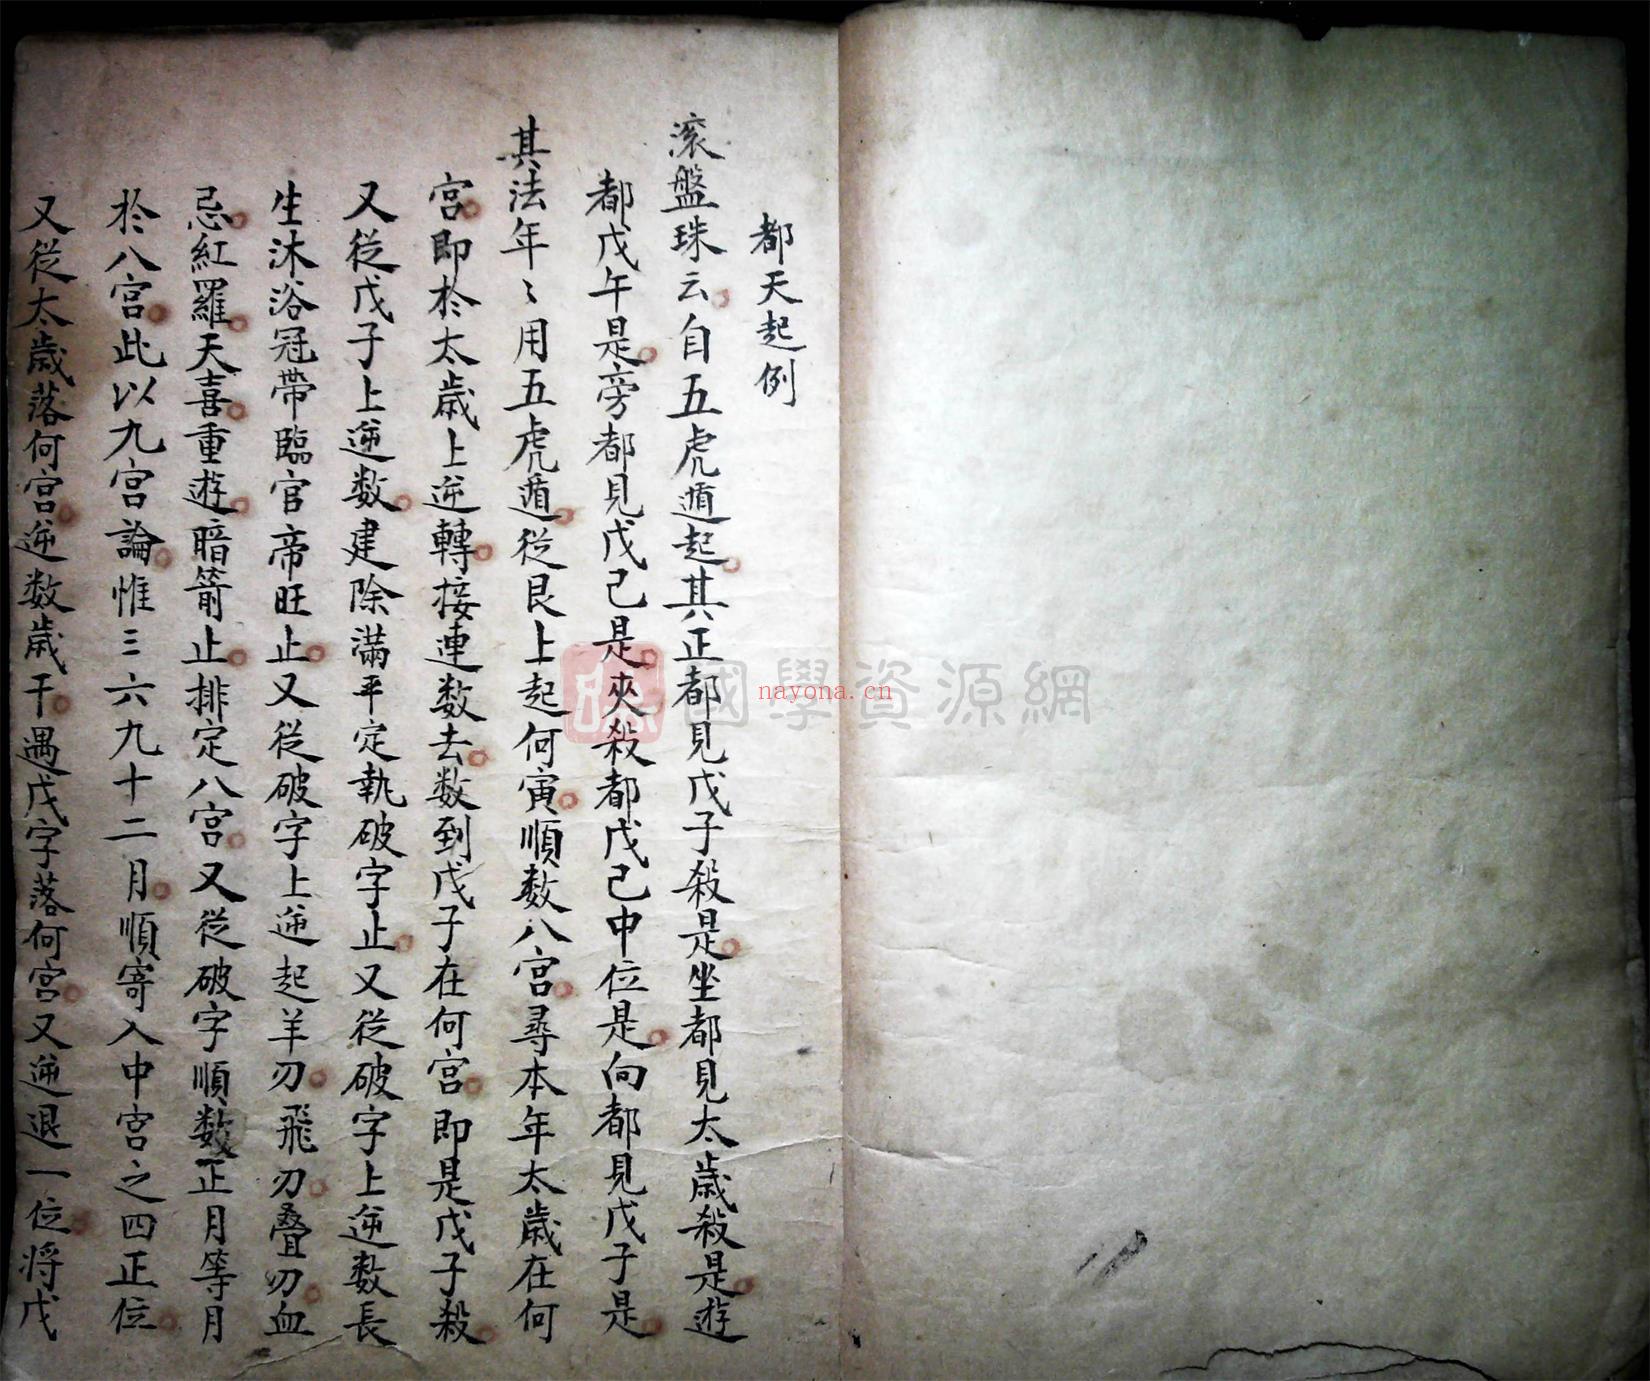 都天起例
滚盤珠云自五虎遁起其正都見戊子殺是坐都見太歲殺是遊
都戊午是旁都見戊己是夾殺都戊己中位是向都見戊子是
其法年〻用五虎遁從艮上起何寅順数八宮尋本年太歲在何
宮即於太歲上逆轉接連数去数到戊子在何宮即是戊子殺
又從戊子上逆数建除滿平定執破字止又從破字上逆数長
生沐浴冠帶臨官帝旺止又從破字上逆起羊刃飛刃叠刃血
忌紅羅天喜重遊暗箭止排定八宮又從破字順数正月等月
於八宮此以九宮論惟三六九十二月順寄入中宮之四正位
又從太歲落何宮逆数歲干遇戊字落何宮又逆退一位将戊
國學資源網
nayona.cn